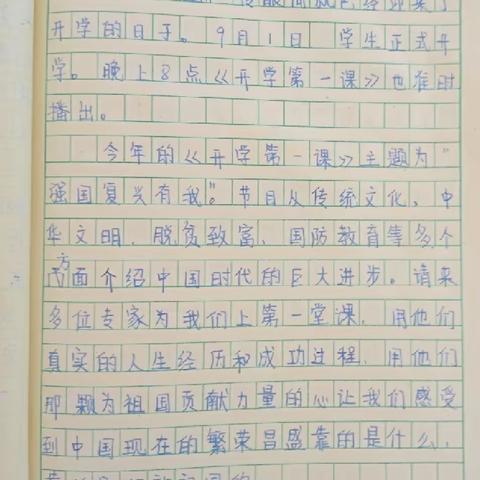 开学的日子。9月1日 学生正式开
学。晚上8点《开学第一课》也准时
播出。
今年的《开学第一课》主题为“
强国复兴有我”。节目从传统文化、中
华文明、脱贫致富、国防教育等多个
方面介绍中国时代的巨大进步。请来
多位专家为我们上第一堂课，用他们
真实的人生经历和成功过程，用他们
那颗为祖国贡献力量的心让我们感受
到中国现在的繁荣昌盛靠的是什么，